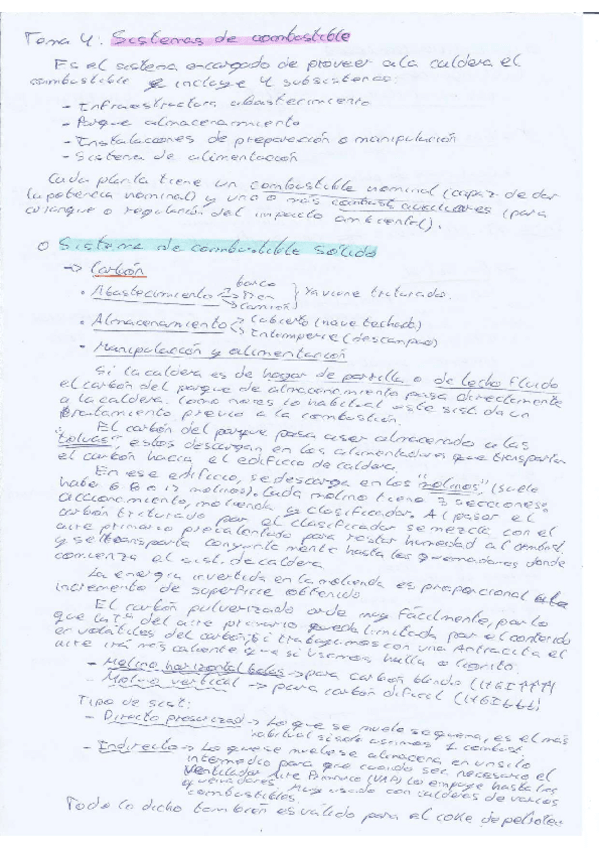 Tema 4: Sistemas de combustible
Es el sistema encargado de proveer a la caldera el
combustible e incluye 4 subsistemas:
- Infraestructura abastecimiento
- Parque almacenamiento
- Instalaciones de preparación o manipulación
- Sistema de alimentación
Cada planta tiene un combustible nominal (capaz de dar
la potencia nominal) y uno o más combust auxiliares (para
arranque o regulación del impacto ambiental).
o Sistema de combustible sólido
-> Carbón
• Abastecimiento -> barco
-> tren
-> camión } Ya viene triturado.
• Almacenamiento -> Cubierto (nave techada)
-> Intemperie (descampado)
- Manipulación y alimentación
Si la caldera es de hogar de parrilla o de lecho fluido
el carbón del parque de almacenamiento pasa directamente
a la caldera. Como no es lo habitual existe sist. de un
tratamiento previo a la combustión.
El carbón del parque pasa a ser almacenado a las
"tolvas", estos descargan en los alimentadores que transportan
el carbón hacia el edificio de caldera.
En ese edificio, se descarga en los "molinos", (suele
haber 6 8 o 12 molinos). Cada molino tiene 3 secciones:
accionamiento, molienda y clasificador. Al pasar el
carbón triturado por el clasificador se mezcla con el
aire primario precalentado para restar humedad al combust.
y se transporta conjuntamente hasta los quemadores donde
comienza el sist. de caldera
La energía invertida en la molienda es proporcional al
incremento de superficie obtenido
El carbón pulverizado arde muy fácilmente, por lo
que la Tª del aire primario queda limitada por el contenido
en volátiles del carbón; si trabajamos con una Antracita el
aire irá más caliente que si usamos hulla o lignito.
- Molino horizontal bolas -> para carbón blando
- Molino vertical -> para carbón difícil
Tipo de sist:
- Directo presurizad -> Lo que se muele se quema, es el más
habitual si solo usamos 1 combust.
- Indirecto -> Lo que se muele se almacena en un silo
intermedio para que cuando sea necesario el
Ventilador Aire Primario (VAP) lo empuje hasta los
quemadores. Muy usado con calderas de varios
combustibles.
Todo lo dicho también es válido para el coke de petróleo